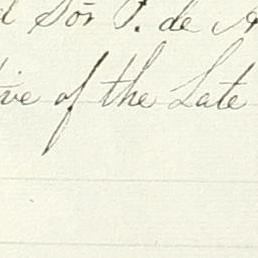 d Sõr P. de A
ive of the Late